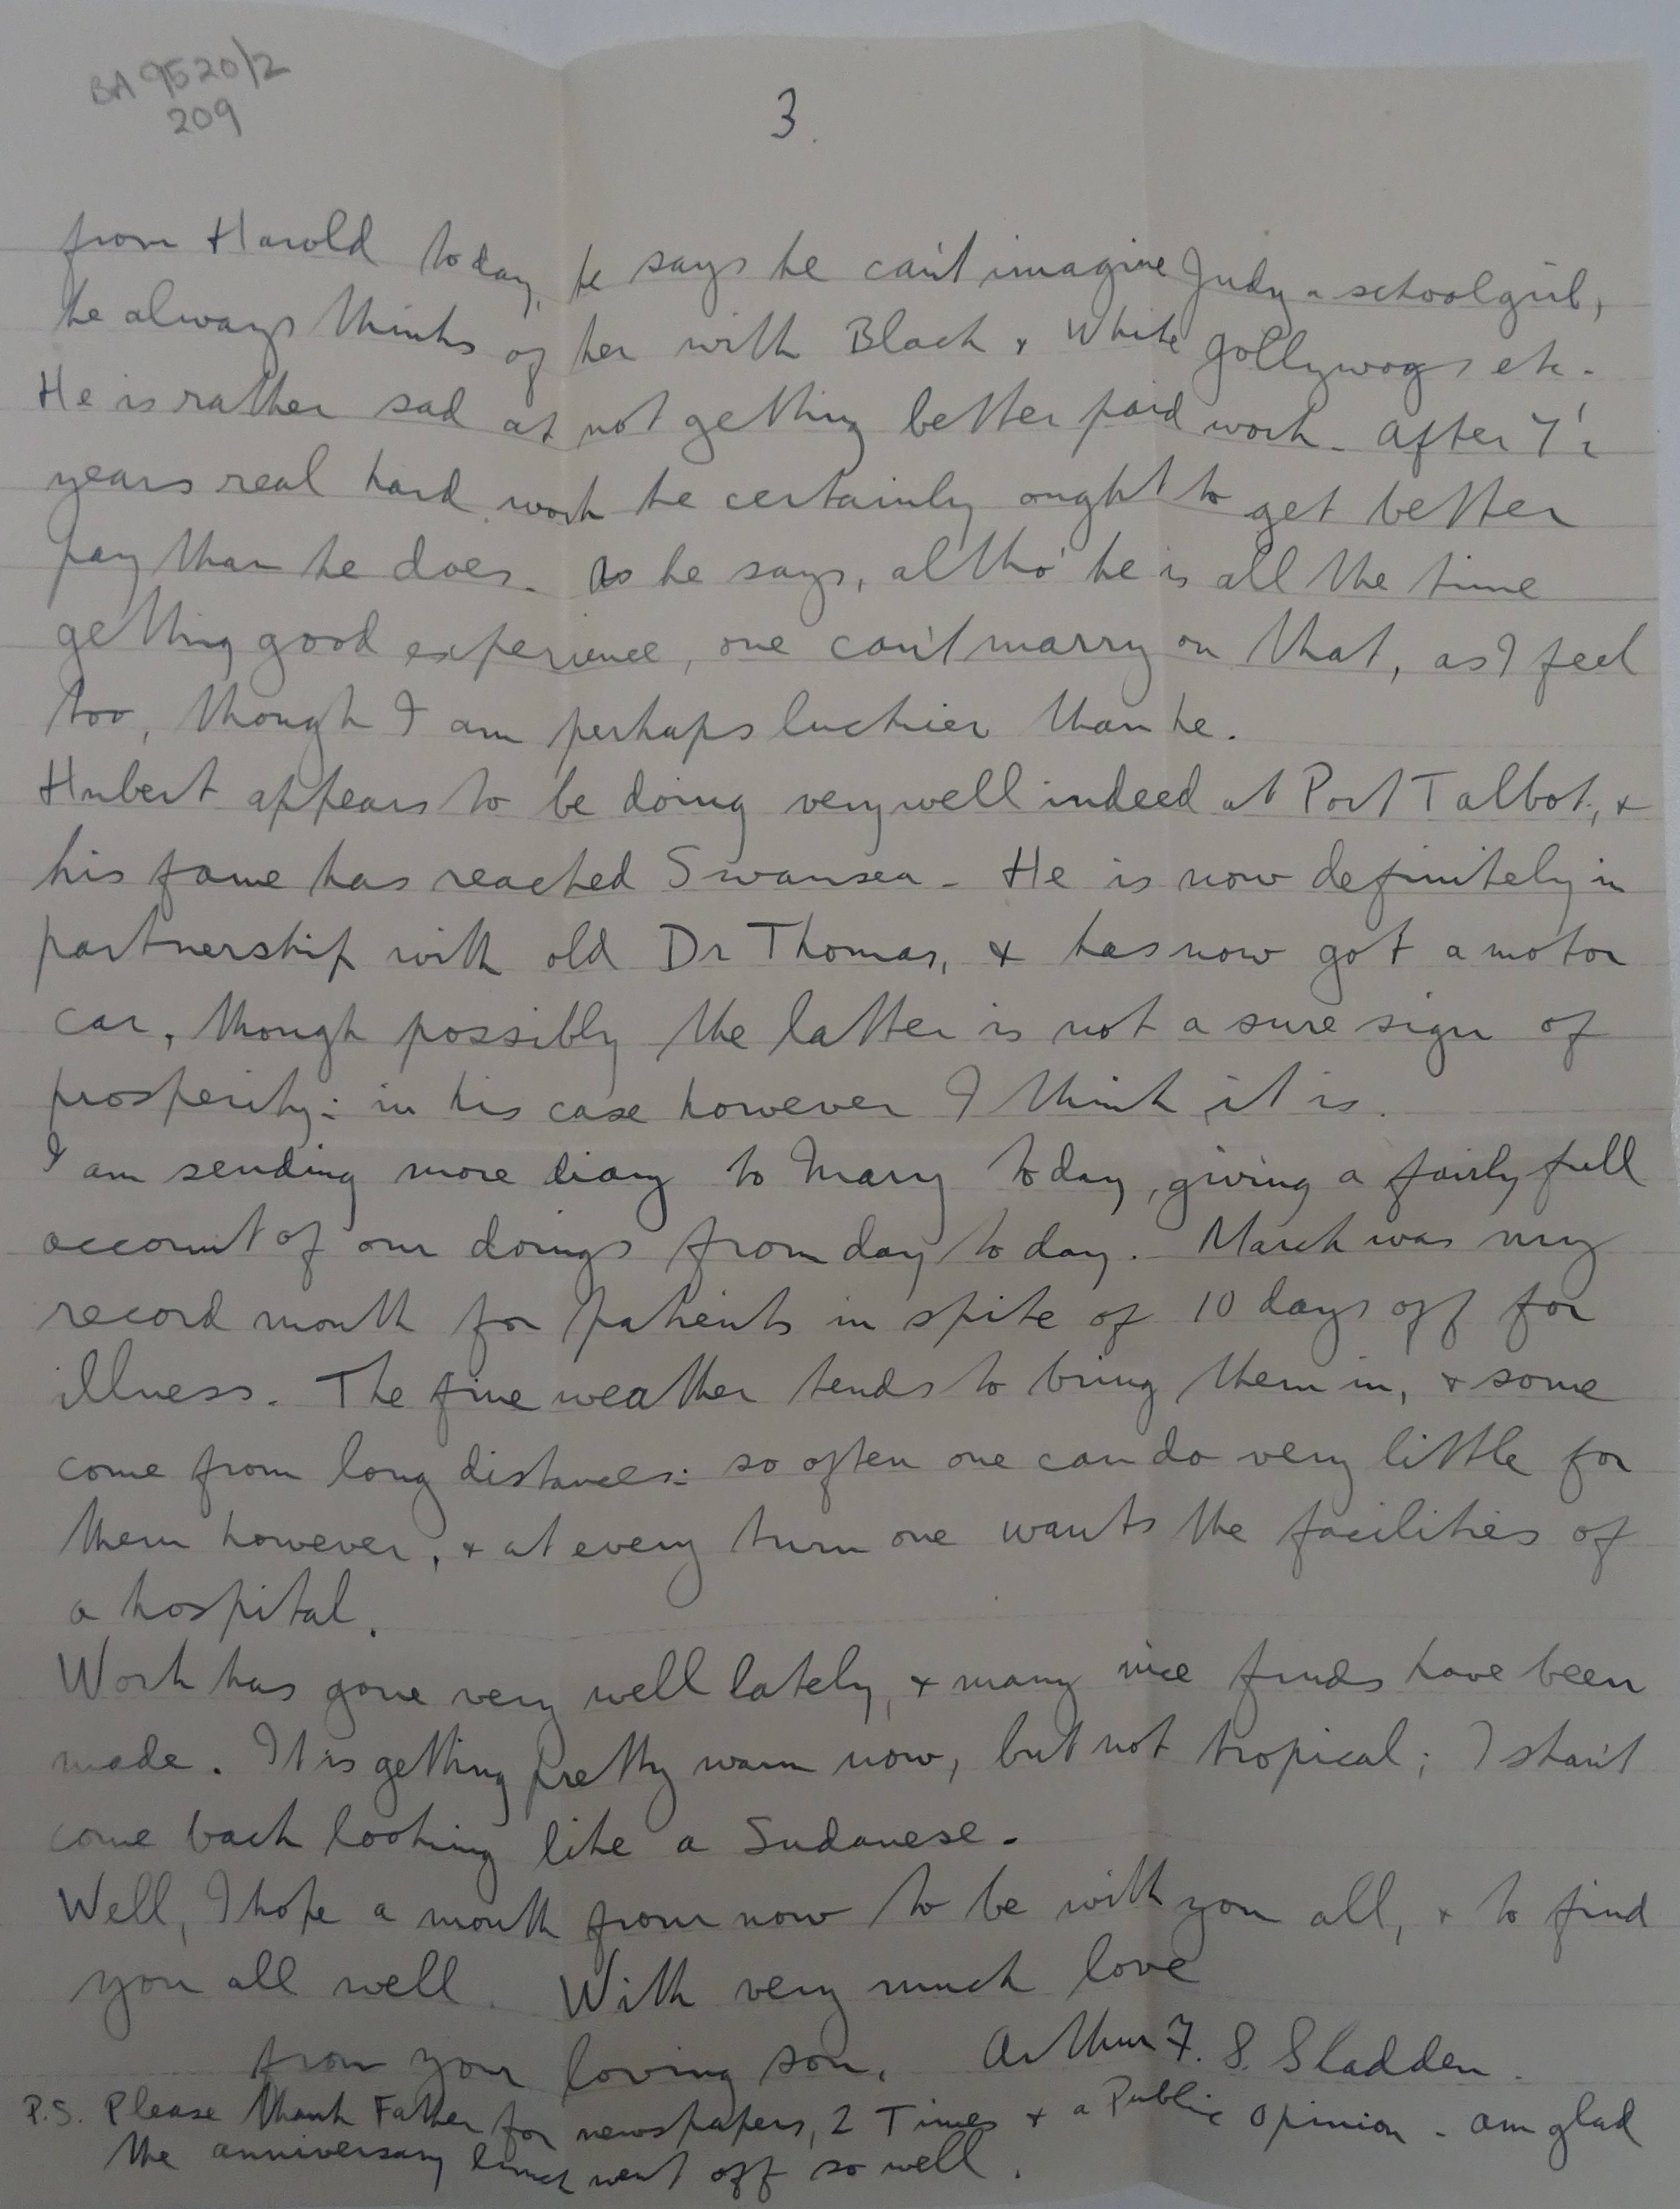 BA 9520/2
209
3.
from Harold today, he says he can't imagine Judy a schoolgirl,
he always thinks of her with Black & White Gollywogs etc.
He is rather sad at not getting better paid work. After 7½
years real hard work he certainly ought to get better
pay than he does. As he says, altho' he is all the time
getting good experience, one can't marry on that, as I feel
too, though I am perhaps luckier than he.
Hubert appears to be doing very well indeed at Port Talbot, &
his fame has reached Swansea. He is now definitely in
partnership with old Dr Thomas, & has now got a motor
car, though possibly the latter is not a sure sign of
prosperity: in his case however I think it is.
I am sending more diary to Mary today, giving a fairly full
account of our doings from day to day. March was my
record month for patients in spite of 10 days off for
illness. The fine weather tends to bring them in, & some
come from long distances: so often one can do very little for
them however, & at every turn one wants the facilities of
a hospital.
Work has gone very well lately, & many nice finds have been
made. It is getting pretty warm now, but not tropical; I shan't
come back looking like a Sudanese.
Well, I hope a month from now to be with you all, & to find
you all well. With very much love
from your loving son, Arthur F. S. Sladden.
P.S. Please thank Father for newspapers, 2 Times & a Public Opinion. Am glad
the anniversary lunch went off so well.